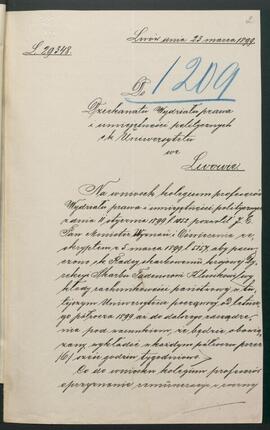 2
Lwów dnia 23 marca 1899.
L. 29348.
Do
1209
Dziekanatu Wydziału prawa
i umiejętności politycznych
c.k. Uniwersytetu
we
Lwowie
Na wniosek kolegium profesorów
Wydziału prawa i umiejętności politycznych
z dnia 11 stycznia 1899 l. 452 J. E.
Pan Minister Wyznań i Oświecenia
reskryptem z 5 marca 1899 l. aby
c.k. Radcy skarbowemu
Skarbu
rachunkowości państwowej w
tutejszym Uniwersytecie począwszy od
półrocza 1899 aż do dalszego zarządze-
nia pod warunkiem, że będzie obowią-
zany wykładać w każdym półroczu przez
(6) sześć godzin tygodniowo.
Co do wniosku kolegium profesorów
o przyznanie remuneracyi w